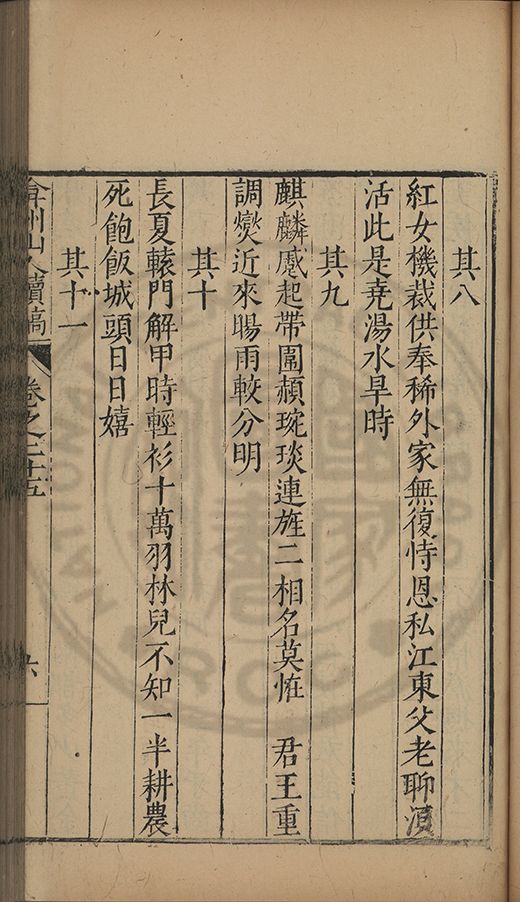 其八
紅女機裁供奉稀外家無復恃恩私江東父老聊須
活此是堯湯水旱時
其九
麒麟蹙起帶圍頳琬琰連旌二相名莫恠 君王重
調爕近來暘雨較分明
其十
長夏轅門解甲時輕衫十萬羽林兒不知一半耕農
死飽飯城頭日日嬉
其十一
弇州山人續稿 卷之二十五 六